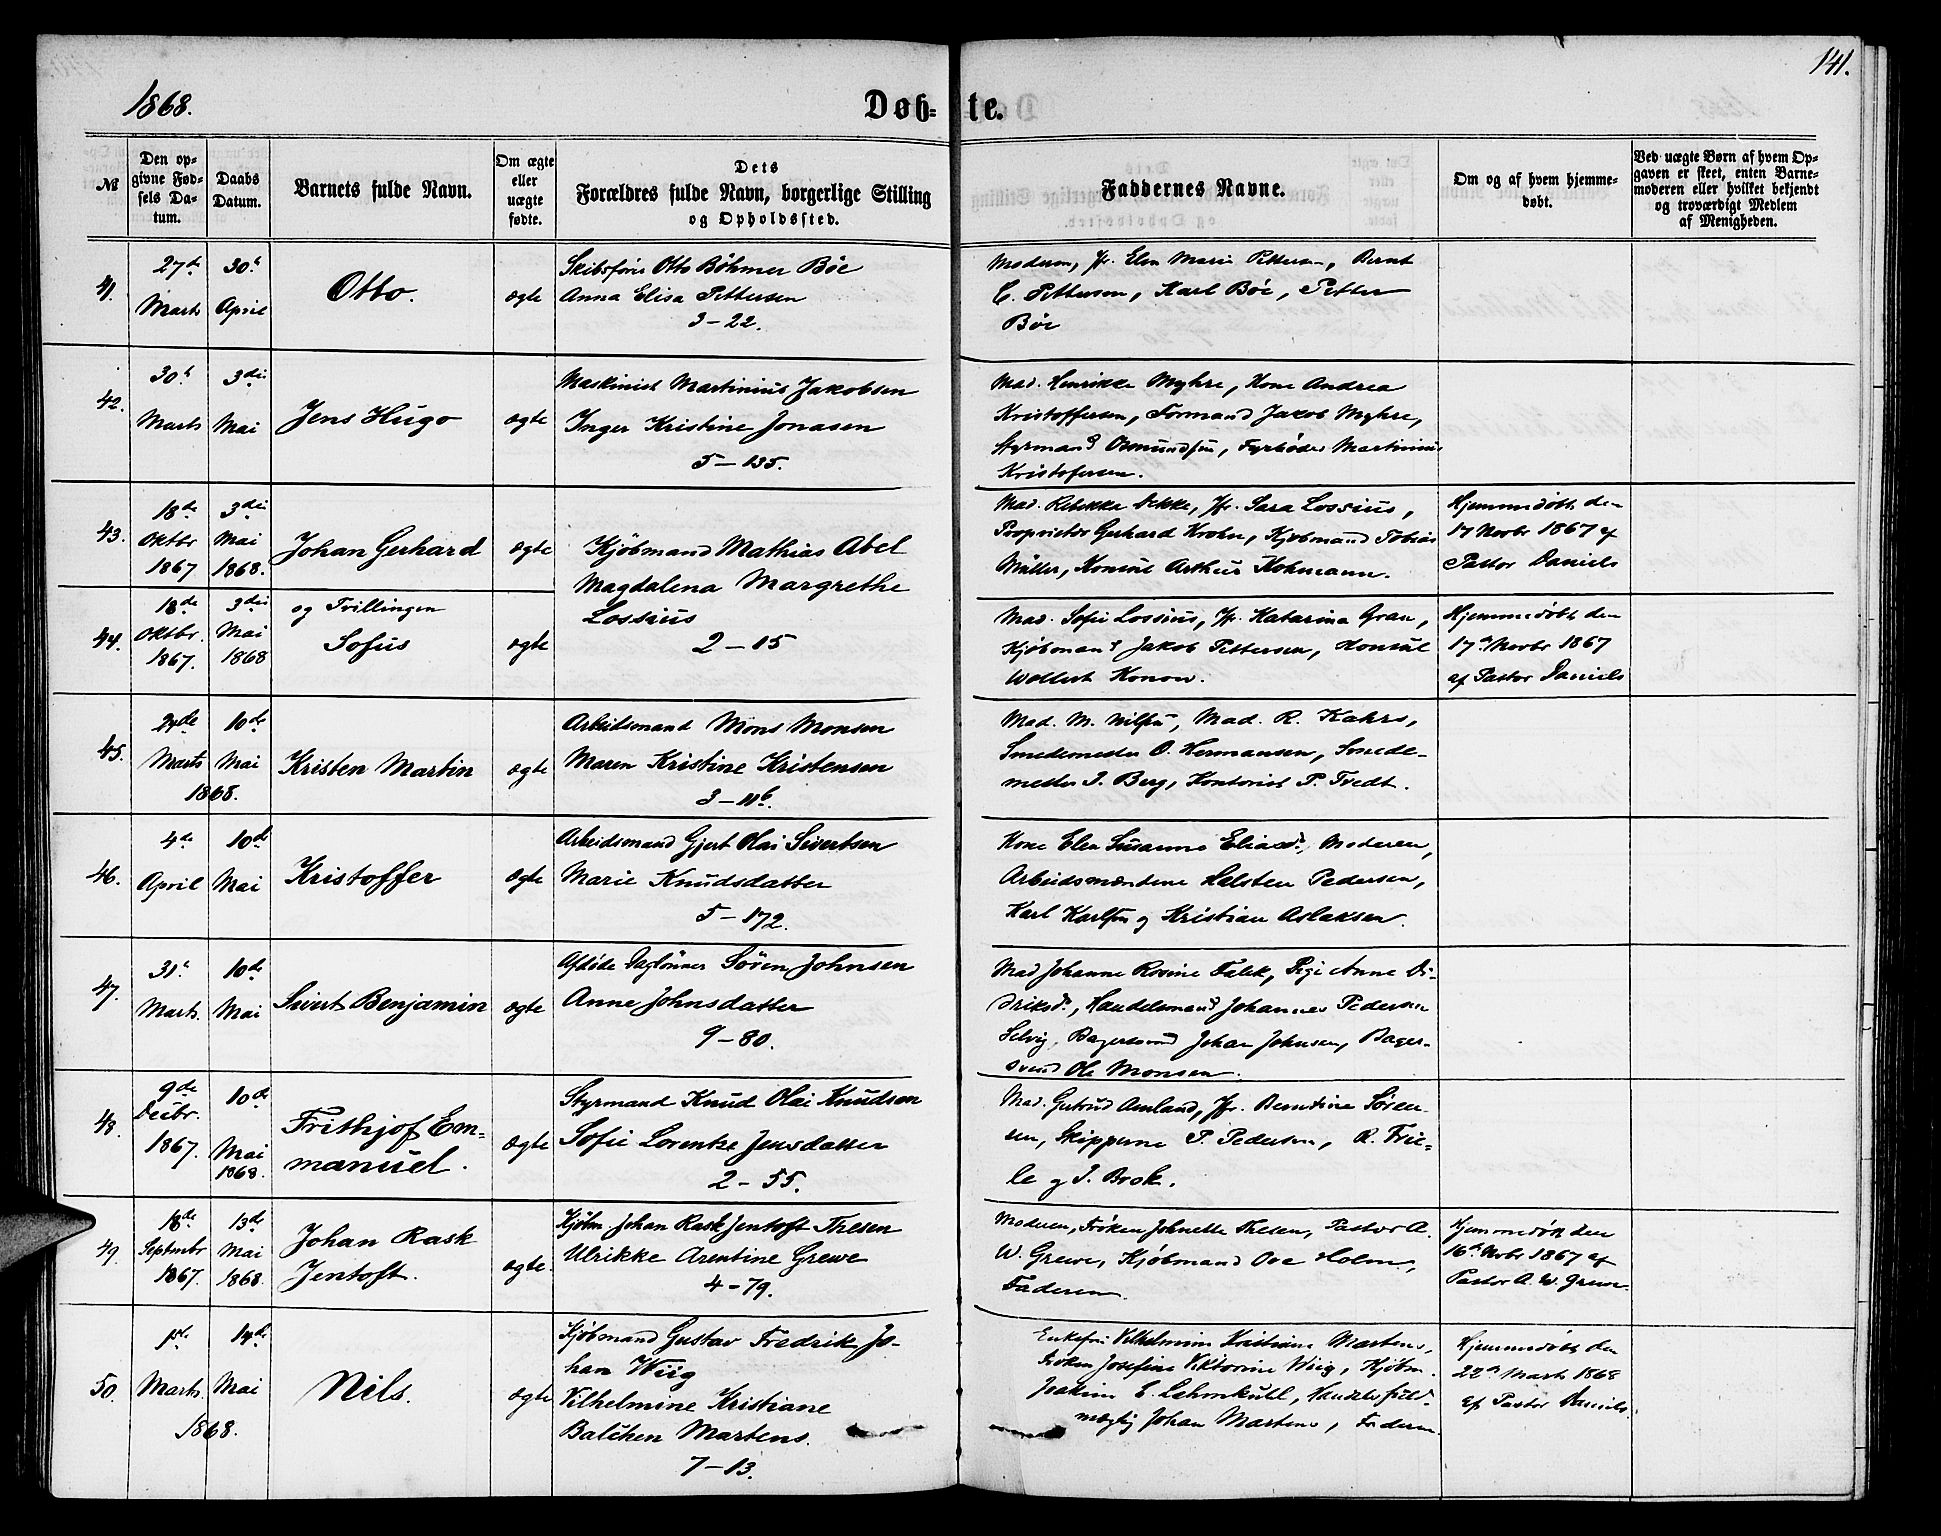 1868.
Døb-
te.
141.
№
Den op-
givne Fød-
sels Da-
tum.
Daabs
Datum.
Barnets fulde Navn.
Om ægte
eller
uægte
fødte.
Dets
Forældres fulde Navn, borgerlige Stilling
og Opholdssted.
Faddernes Navne.
Om og af hvem hjemme-
døbt.
Ved uægte Børn af hvem Op-
gaven er skeet, enten Barne-
moderen eller hvilket bekjendt
og troværdigt Medlem
af Menigheden.
41.
27de
Marts
30te
April
Otto.
ægte
Skibsfører Otto Bøhmer Böe
Anna Elisa Pettersen
3-22.
Moderen, Jfr. Elen Marie Pettersen, Bernt
C. Pettersen, Karl Böe, Petter
Böe
42.
30t
Marts
3die
Mai
Jens Hugo
ægte
Maskinist Martinius Jakobsen
Inger Kristine Jonasen
5-135.
Mad. Henrikke Myhre, Kone Andrea
Kristoffersen, Formand Jakob Myhre,
Styrmand Osmundsen, Fyrbøder Martinius
Kristofersen.
43.
18de
Oktbr
1867
3die
Mai
1868.
Johan Gerhard
ægte
Kjöbmand Mathias Abel
Magdalena Margrethe
Lossius
2-15
Mad. Rebekka Dekke, Jfr. Sara Lossius,
Proprietær Gerhard Krohn, Kjøbmand Tobias
Müller, Konsul Arthur Kohmann.
Hjemmedøbt den
17 Novbr 1867 af
Pastor Daniels
44.
18de
Oktbr.
1867.
3die
Mai
1868
og Tvillingen
Sofus
ægte
Mad. Sofie Lossius, Jfr. Katarina Gran,
Kjøbmand Jakob Pettersen, Konsul
Wollert Konow.
Hjemmedøbt den
17de Novbr 1867
af Pastor Daniels
45.
24de
Marts
1868.
10de
Mai
Kristen Martin
ægte
Arbeidsmand Mons Monsen
Maren Kristine Kristensen
3-11b.
Mad. M. Nilsen, Mad. R. Kahrs,
Smedemester O. Hermansen, Smede-
mester J. Berg, Kontorist P. Tvedt.
46.
4de
April
10de
Mai
Kristoffer
ægte
Arbeidsmand Gjert Olai Sivertsen
Marie Knudsdatter
5-172.
Kone Elen Susanne Eliasd., Moderen,
Arbeidsmændene Halsten Pedersen,
Karl Karlsen og Kristian Aslaksen.
47.
31t
Marts.
10de
Mai
Sivert Benjamin
ægte
Afdøde Daglønner Sören Johnsen
Anne Johnsdatter
9-80.
Mad Johanne Rosine Falck, Pige Anne Di-
driksd., Handelsmand Johannes Pedersen
Selvig, Bagersvend Johan Johnsen, Bager-
svend Ole Monsen.
48.
9de
Decbr.
1867.
10de
Mai
1868.
Frithjof Em-
manuel.
ægte
Styrmand Knud Olai Knudsen
Sofie Lorentze Jensdatter
2-55.
Mad. Gertrud Amland, Jfr. Berntine Sören-
sen, Skipperne P. Pedersen, R. Frie-
le og J. Brok.
49.
18de
Septmbr
1867.
13de
Mai
1868.
Johan Rask
Jentoft.
ægte.
Kjøbm Johan Rask Jentoft Thesen
Ulrikke Arentine Grewe
4-79.
Moderen, Frøken Johnette Thesen, Pastor A.
W. Grewe, Kjøbmand Ove Holm,
Faderen.
Hjemmedøbt den
16de Novbr 1867 af
Pastor A. W. Grewe
50.
1ste
Marts
1868.
14de
Mai
Nils.
ægte
Kjøbmand Gustav Fredrik Jo-
han Wiig
Vilhelmine Kristiane
Balchen Martens.
7-13.
Enkefru Vilhelmine Kristiane Martens,
Frøken Josefine Viktorine Wiig, Kjøbm.
Joakim E. Lehmkuhl, Handelsfuld-
mægtig Johan Martens, Faderen
Hjemmedøbt den
22de Marts 1868
af Pastor Daniels.